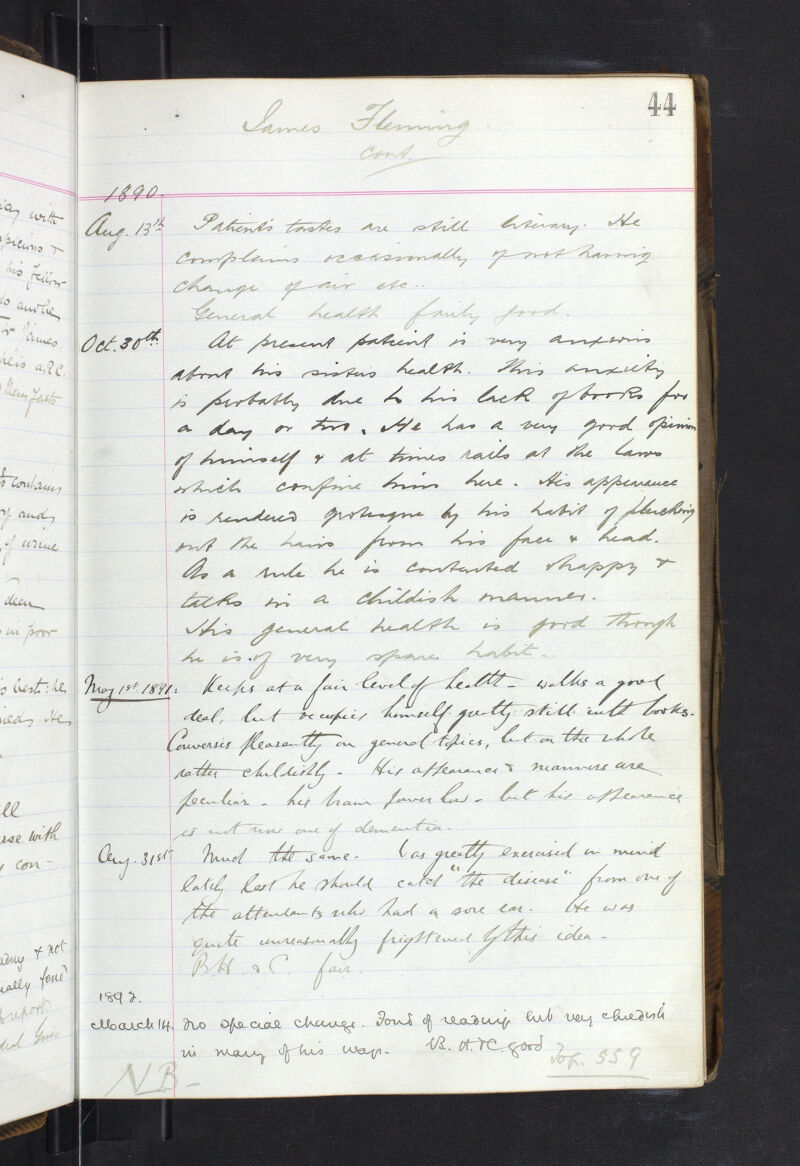 icy with
spicious &
his fellow
Dr James
he is a
them facts
contains
and
of urine
been
in poor
best: he
He
ll
ase with
con-
& not
ually fond
report
44
James Fleming
cont.
1890.
Aug. 13th Patient's tastes are still literary. He
complains occasionally of not having
change of air etc..
General health fairly good.
Oct. 30th At present patient is very anxious
about his sisters health. This anxiety
is probably due to his lack of books for
a day or two. He has a very good opinion
of himself & at times rails at the laws
which confine him here. His appearance
is rendered grotesque by his habit of plucking
out the hairs from his face & head.
As a rule he is contented & happy &
talks in a childish manner.
His general health is good though
he is of very spare habit.
May 1st 1891: Keeps at a fair level of health - walks a good
deal, but occupies himself greatly still with books.
Converses pleasantly on general topics, but on the whole
rather childishly - His appearance & manners are
peculiar - his brain power low - but his appearance
is not now one of dementia.
Aug. 31st Much the same. Was greatly exercised in mind
lately lest he should catch "the disease" from one of
the attendants who had a sore ear. He was
quite unreasonably frightened by this idea -
B.H. & C. fair.
1892.
March 14. No special change. Fond of reading but very childish
in many of his ways. B. H. & C. good
To p. 559
NB -